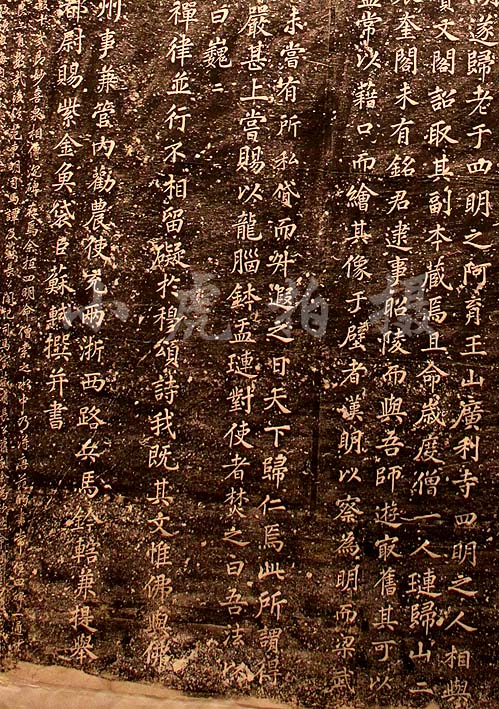 遂歸老于四明之阿育王山廣利寺四明之人相與
寶文閣詔取其副本藏焉且命歲度僧一人璉歸山二
奎閣未有銘君逮事昭陵而與吾師遊冣舊其可以
蓋常以藉口而繪其像于壁者漢明以察為明而梁武
未嘗有所私貸而升遐之日天下歸仁焉此所謂得
嚴甚上嘗賜以龍腦鉢盂璉對使者焚之曰吾法以
曰巍二
禪律並行不相留礙於穆頌詩我既其文惟佛與佛
州事兼管內勸農使充兩浙西路兵馬鈐轄兼提舉
都尉賜紫金魚袋臣蘇軾撰并書
小虎拍摄